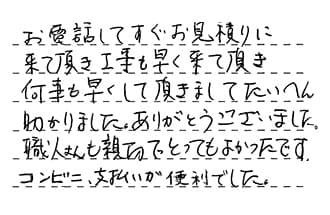 お電話してすぐお見積りに
来て頂き工事も早く来て頂き
何事も早くして頂きましてたいへん
助かりました。ありがとうございました。
職人さんも親切でとってもよかったです。
コンビニ、支払いが便利でした。